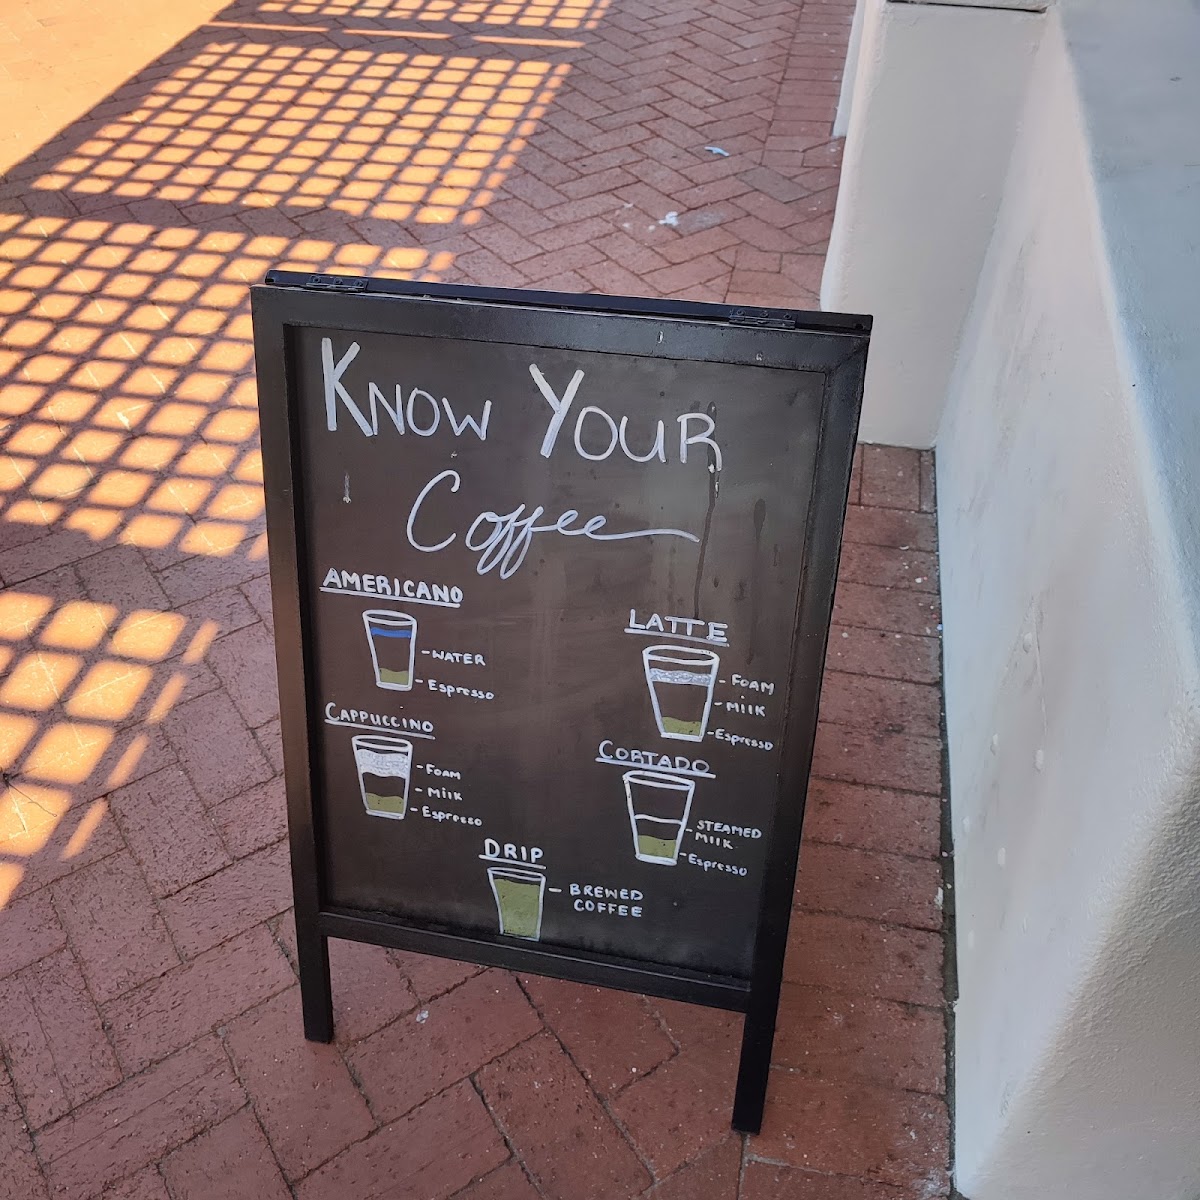 KNOW YOUR
Coffee
AMERICANO
-WATER
-Espresso
CAPPUCCINO
-FOAM
-MilK
-Espresso
LATTE
-FOAM
-MilK
-Espresso
CORTADO
-STEAMED
MilK
-Espresso
DRIP
-BREWED
COFFEE